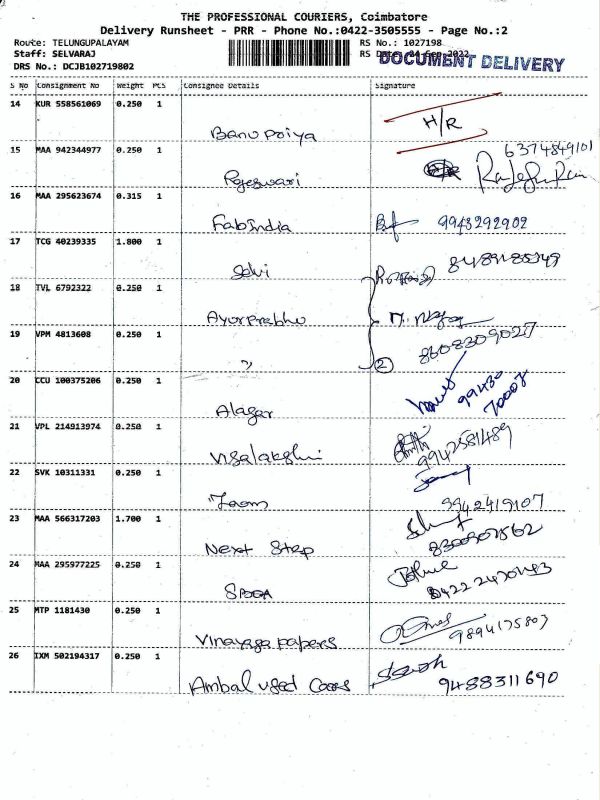 THE PROFESSIONAL COURIERS, Coimbatore
Delivery Runsheet - PRR - Phone No.:0422-3505555 - Page No.:2
Route: TELUNGUPALAYAM RS No.: 1027198
Staff: SELVARAJ RS Date: 24-Sep-2022
DOCUMENT DELIVERY
DRS No.: DCJB102719802
S No Consignment No Weight PCS Consignee Details Signature
14 KUR 558561069 0.250 1
Banu Priya H/R
15 MAA 942344977 0.250 1 6374849101
Rajeswari
16 MAA 295623674 0.315 1
FabIndia 9943292902
17 TCG 40239335 1.800 1
Selvi
18 TVL 6792322 0.250 1
Ayurprabhu
19 VPM 4813608 0.250 1 8608309027
" 2
20 CCU 100375206 0.250 1
Alagar 99430 70008
21 VPL 214913974 0.250 1
Visalakshi 9942581489
22 SVK 10311331 0.250 1
Zoom 9942419107
23 MAA 566317203 1.700 1
Next Step
24 MAA 295977225 0.250 1
Spoga
25 MTP 1181430 0.250 1
Vinayaga papers 9894175803
26 IXM 502194317 0.250 1
Ambal used Cars 9488311690